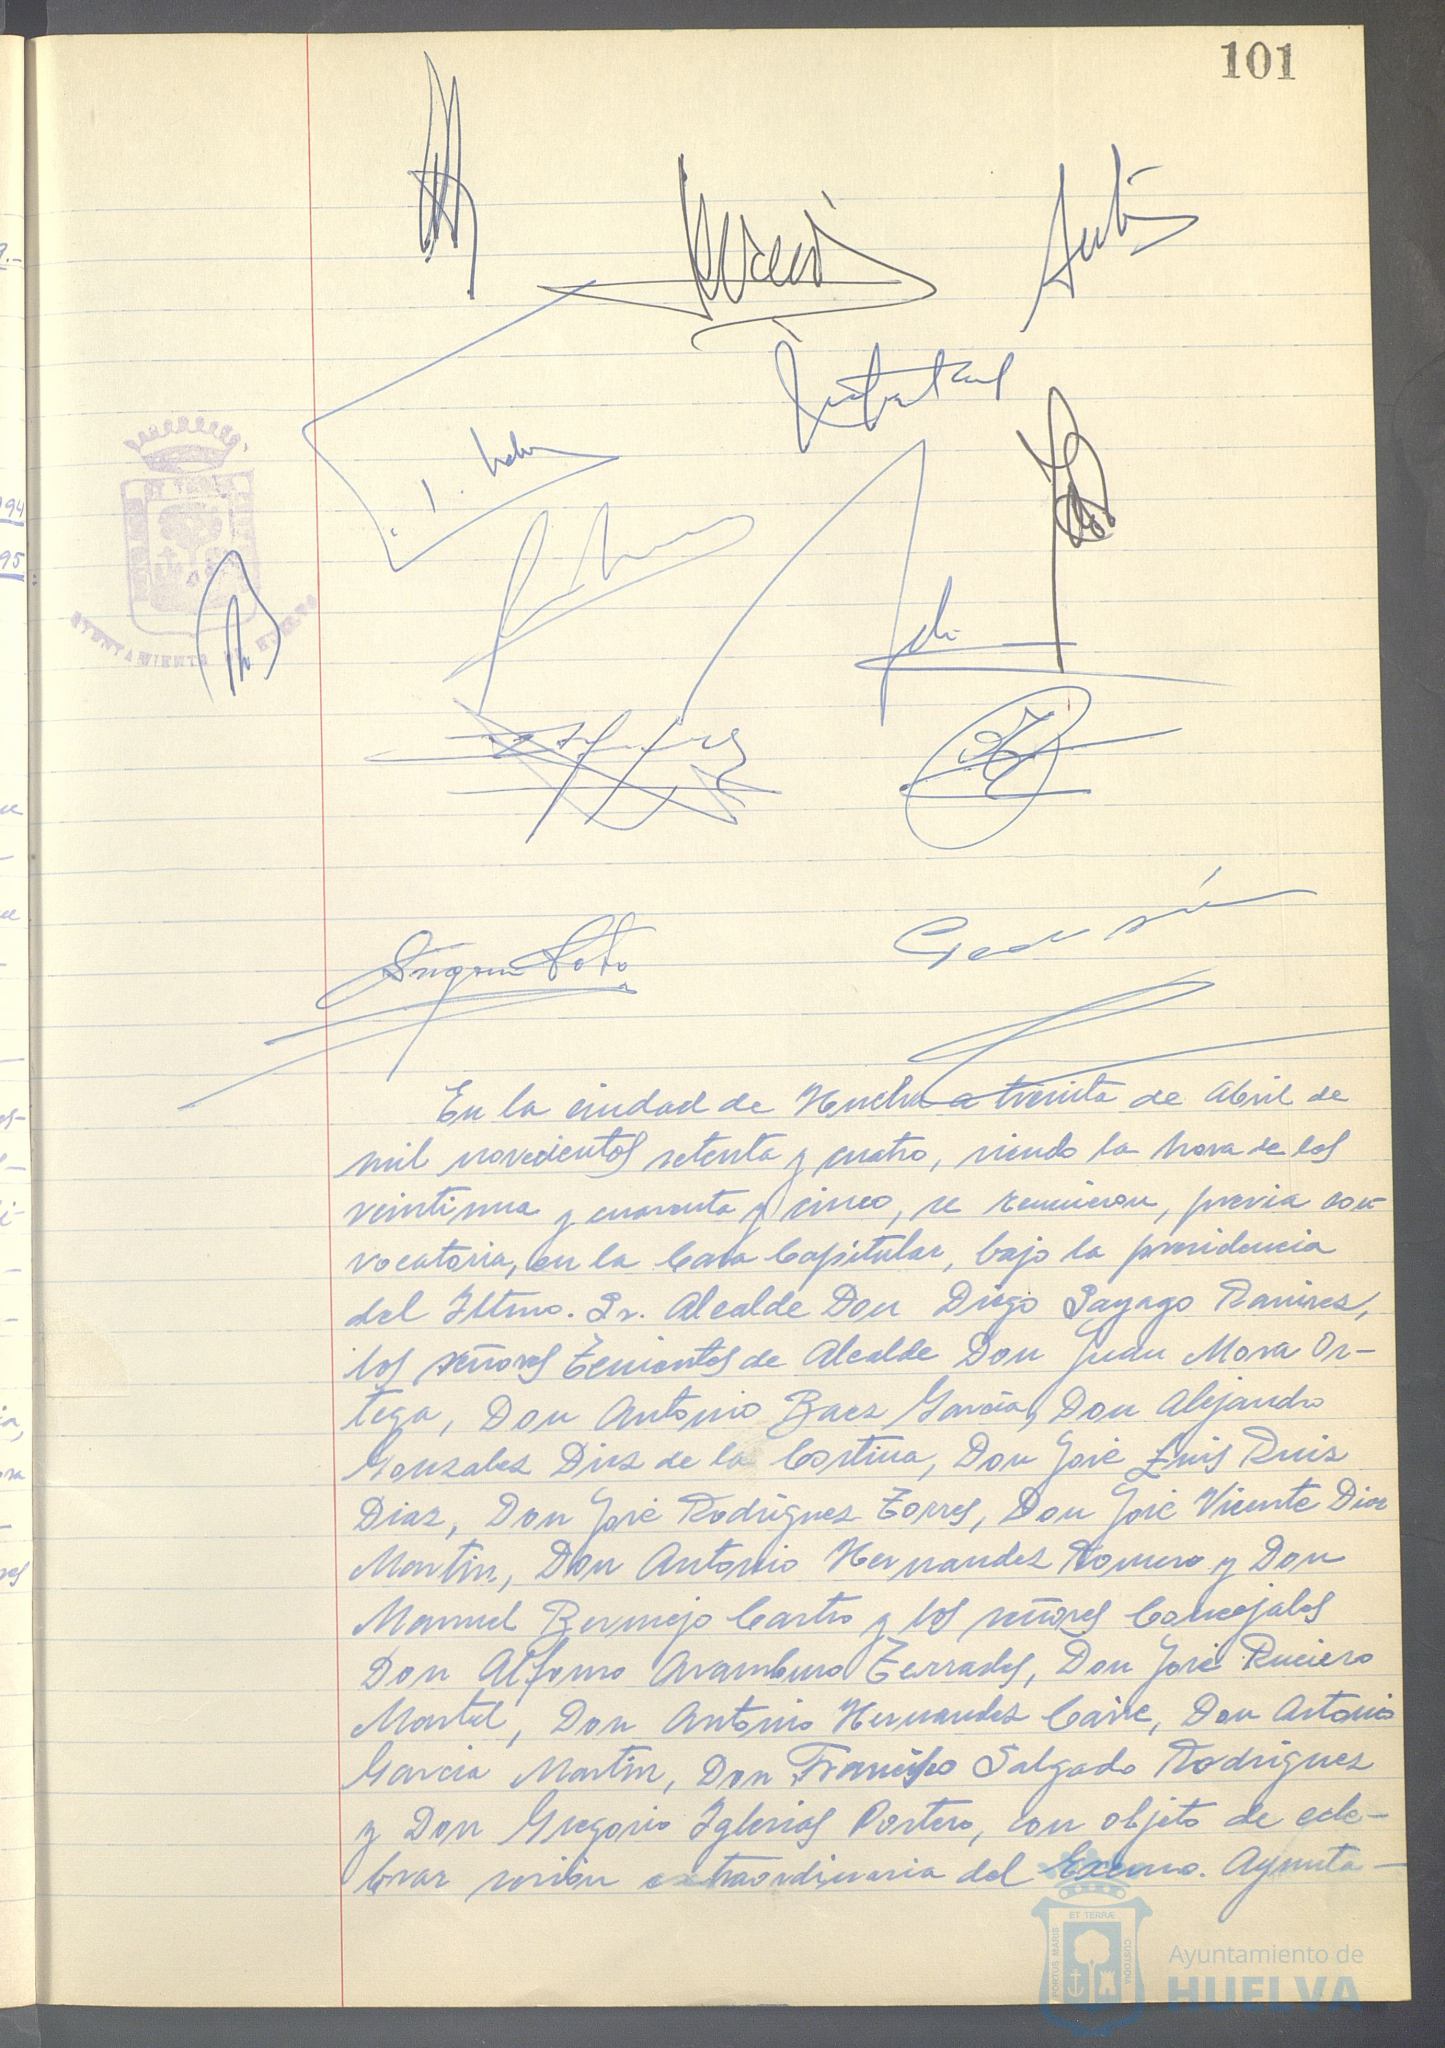 101
En la ciudad de Huelva a treinta de Abril de
mil novecientos setenta y cuatro, siendo la hora de las
veintiuna y cuarenta y cinco, se reunieron, previa con
vocatoria, en la Casa Capitular, bajo la presidencia
del Iltmo. Sr. Alcalde Don Diego Sayago Ramirez,
los señores Tenientes de Alcalde Don Juan Mora Or-
tega, Don Antonio Baez Garcia, Don Alejandro
Gonzalez Diez de la Cortina, Don José Luis Ruiz
Diaz, Don José Rodriguez Torres, Don José Vicente Diaz
Martin, Don Antonio Hernandez Romero y Don
Manuel Bermejo Castro y los señores Concejales
Don Alfonso Aramburo Terrades, Don José Ruciero
Martel, Don Antonio Hernandez Caire, Don Antonio
Garcia Martin, Don Francisco Salgado Rodriguez
y Don Gregorio Iglesias Portero, con objeto de cele-
brar sesión extraordinaria del Excmo. Ayunta-
AYUNTAMIENTO DE HUELVA
PORTUS MARIS ET TERRAE CUSTODIA
Ayuntamiento de
HUELVA